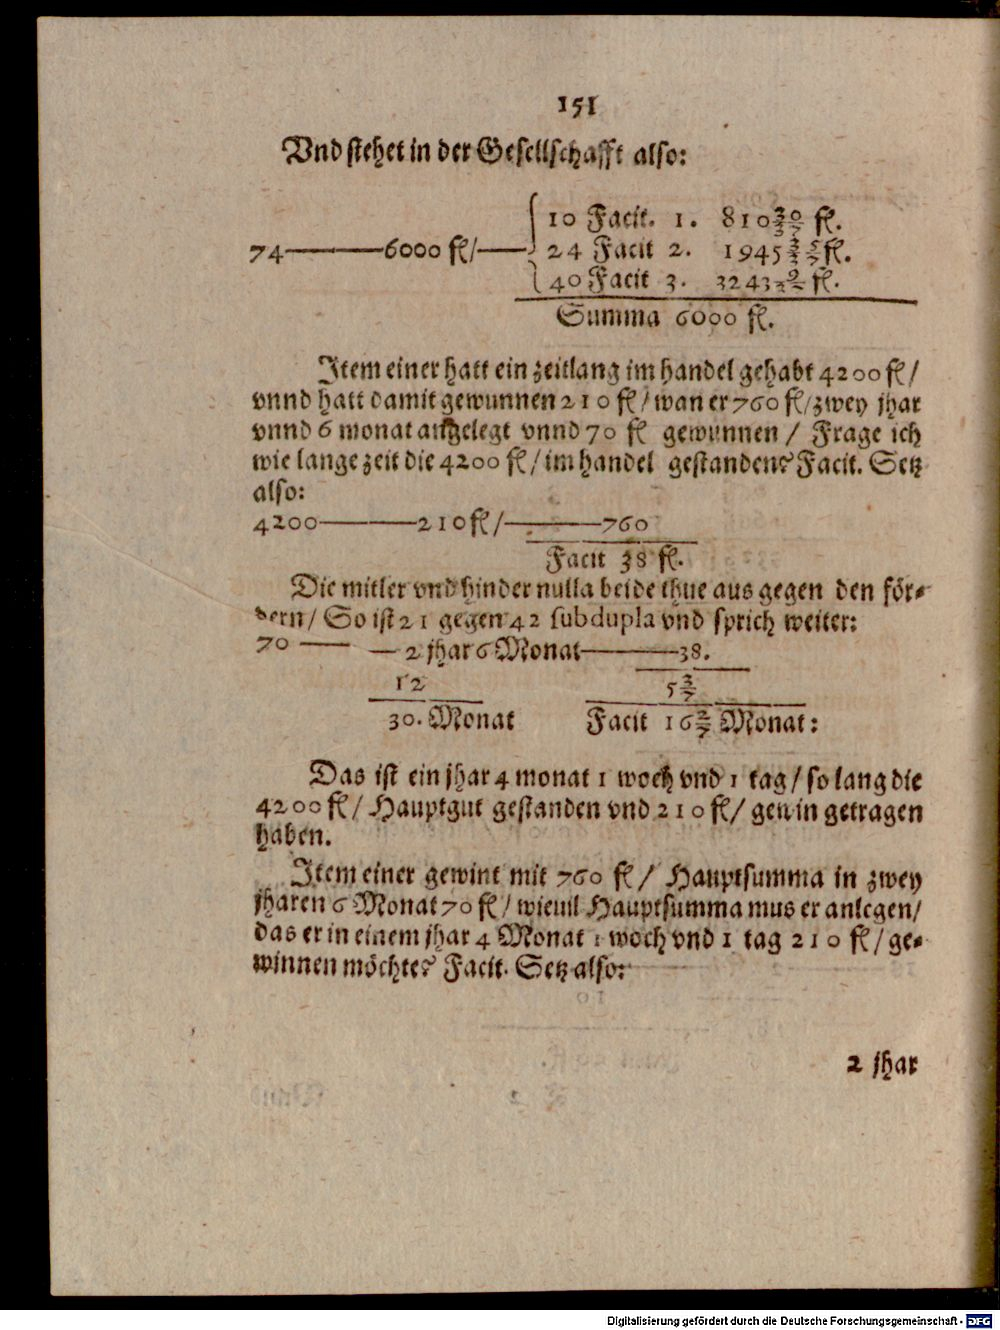 151
Vnd stehet in der Gesellschafft also:
10 Facit. 1. 810 30/37 fl.
74———6000 fl/— 24 Facit 2. 1945 35/37 fl.
40 Facit 3. 3243 9/37 fl.
Summa 6000 fl.
Item einer hatt ein zeitlang im handel gehabt 4200 fl/
vnnd hatt damit gewunnen 210 fl/ wan er 760 fl/ zwey jhar
vnnd 6 monat angelegt vnnd 70 fl gewunnen / Frage ich
wie lange zeit die 4200 fl/ im handel gestanden? Facit. Setz
also:
4200———210 fl/———760
Facit 38 fl.
Die mitler vnd hinder nulla beide thue aus gegen den för-
dern/ So ist 21 gegen 42 subdupla vnd sprich weiter:
70 —— — 2 jhar 6 Monat———38.
12 5 3/7
30. Monat Facit 16 2/7 Monat:
Das ist ein jhar 4 monat 1 woch vnd 1 tag/ so lang die
4200 fl/ Hauptgut gestanden vnd 210 fl/ gewin getragen
haben.
Item einer gewint mit 760 fl/ Hauptsumma in zwey
jharen 6 Monat 70 fl/ wieuil Hauptsumma mus er anlegen/
das er in einem jhar 4 Monat 1 woch vnd 1 tag 210 fl/ ge-
winnen möchte? Facit. Setz also:
2 jhar
Digitalisierung gefördert durch die Deutsche Forschungsgemeinschaft - DFG